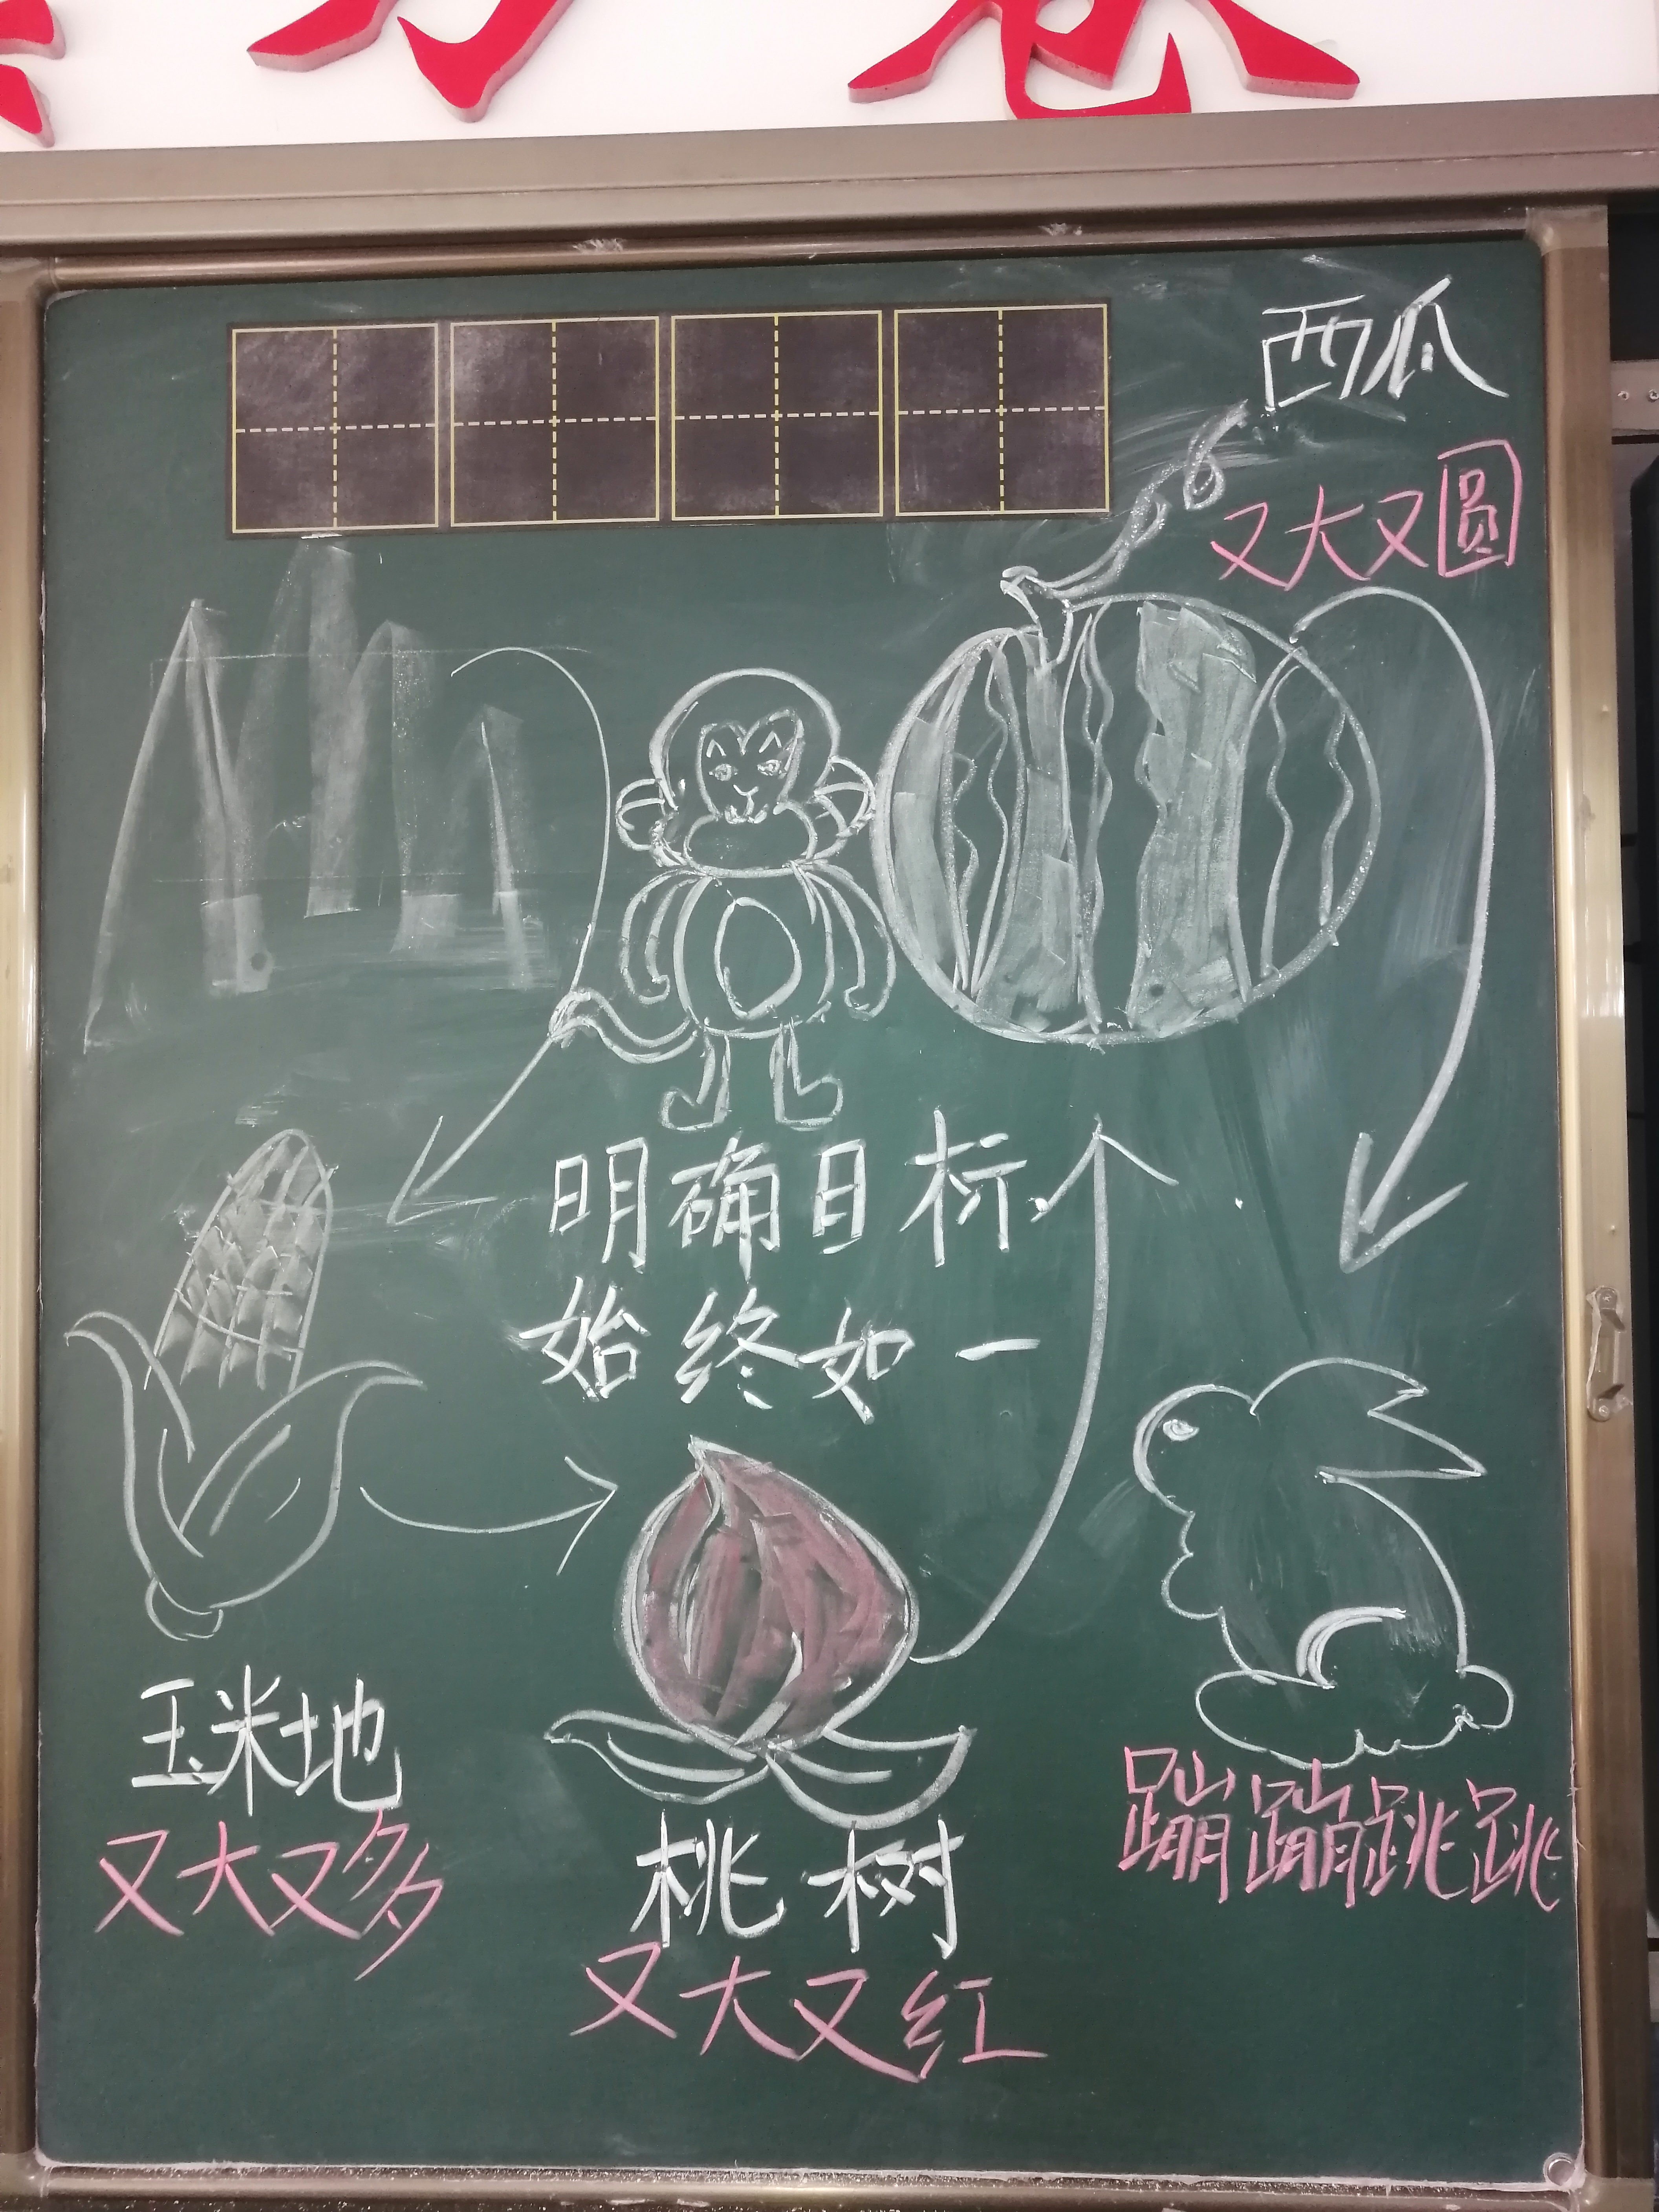 西瓜
又大又圆
明确目标
始终如一
玉米地
又大又多
桃树
又大又红
蹦蹦跳跳